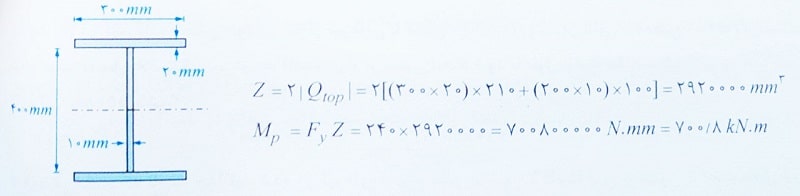 ۳۰۰mm
۲۰mm
۴۰۰mm
۱۰mm
Z = ۲|Q_top| = ۲[(۳۰۰×۲۰)×۲۱۰+(۲۰۰×۱۰)×۱۰۰] = ۲۹۲۰۰۰۰ mm^۳
M_p = F_y Z = ۲۴۰×۲۹۲۰۰۰۰ = ۷۰۰۸۰۰۰۰۰ N.mm = ۷۰۰/۸ kN.m